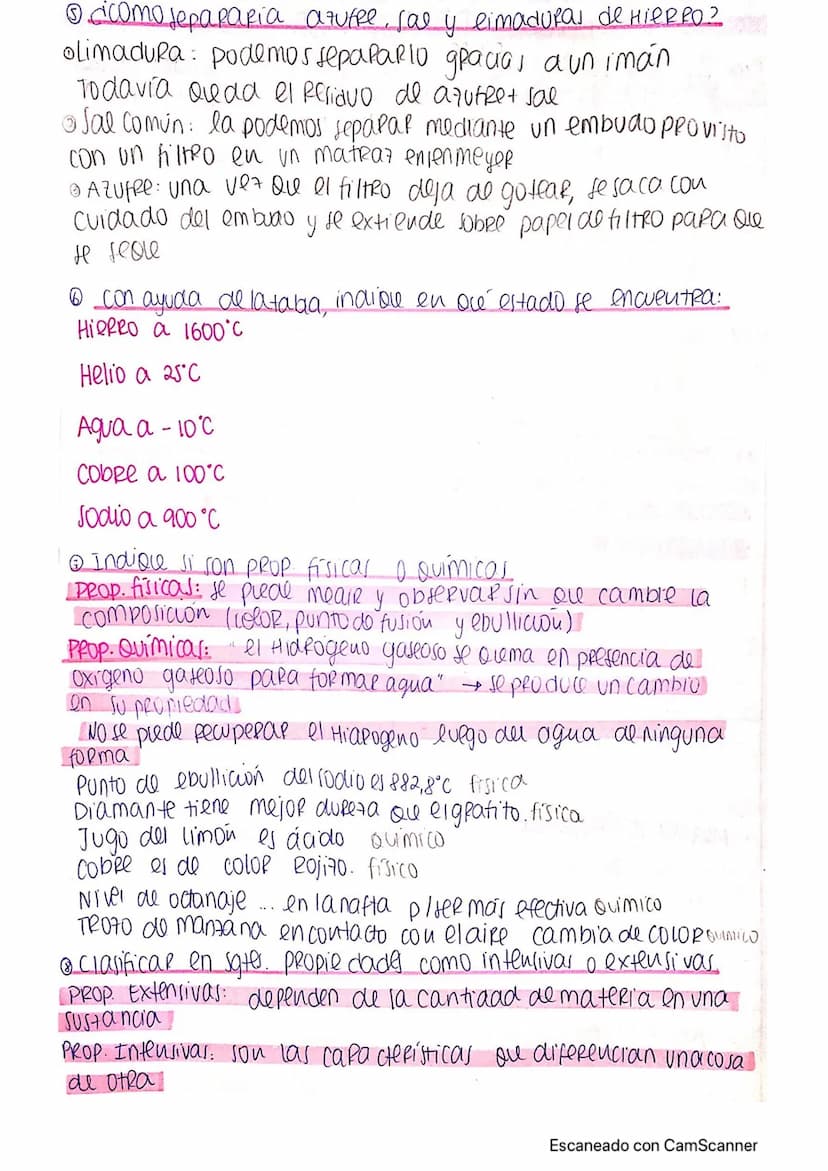 ⑤ ¿Cómo separaría azufre, sal y limaduras de Hierro?
① Limadura: podemos separarlo gracias a un imán
Todavía queda el residuo de azufre + sal
② Sal Común: la podemos separar mediante un embudo provisto
con un filtro en un matraz enlenmeyer
③ Azufre: una vez que el filtro deja de gotear, se saca con
cuidado del embudo y se extiende sobre papel de filtro para que
se seque
⑥ con ayuda de la tabla, indique en qué estado se encuentra:
Hierro a 1600°C
Helio a 25°C
Agua a -10°C
Cobre a 100°C
Sodio a 900°C
⑦ Indique si son prop. físicas o químicas
Prop. físicas: se puede medir y observar sin que cambie la
composición (color, punto de fusión y ebullición)
Prop. Químicas: "el Hidrógeno gaseoso se quema en presencia de
oxígeno gaseoso para formar agua" → se produce un cambio
en su propiedad
No se puede recuperar el Hidrogeno luego del agua de ninguna
forma
Punto de ebullición del sodio es 882,8°C física
Diamante tiene mejor dureza que el grafito. física
Jugo del limón es ácido químico
Cobre es de color rojizo. físico
Nivel de octanaje ... en la nafta p/ser más efectiva químico
Trozo de manzana en contacto con el aire cambia de color químico
⑧ Clasificar en sgtes. propiedades como intensivas o extensivas.
Prop. Extensivas: dependen de la cantidad de materia en una
sustancia
Prop. Intensivas: son las características que diferencian una cosa
de otra
Escaneado con CamScanner